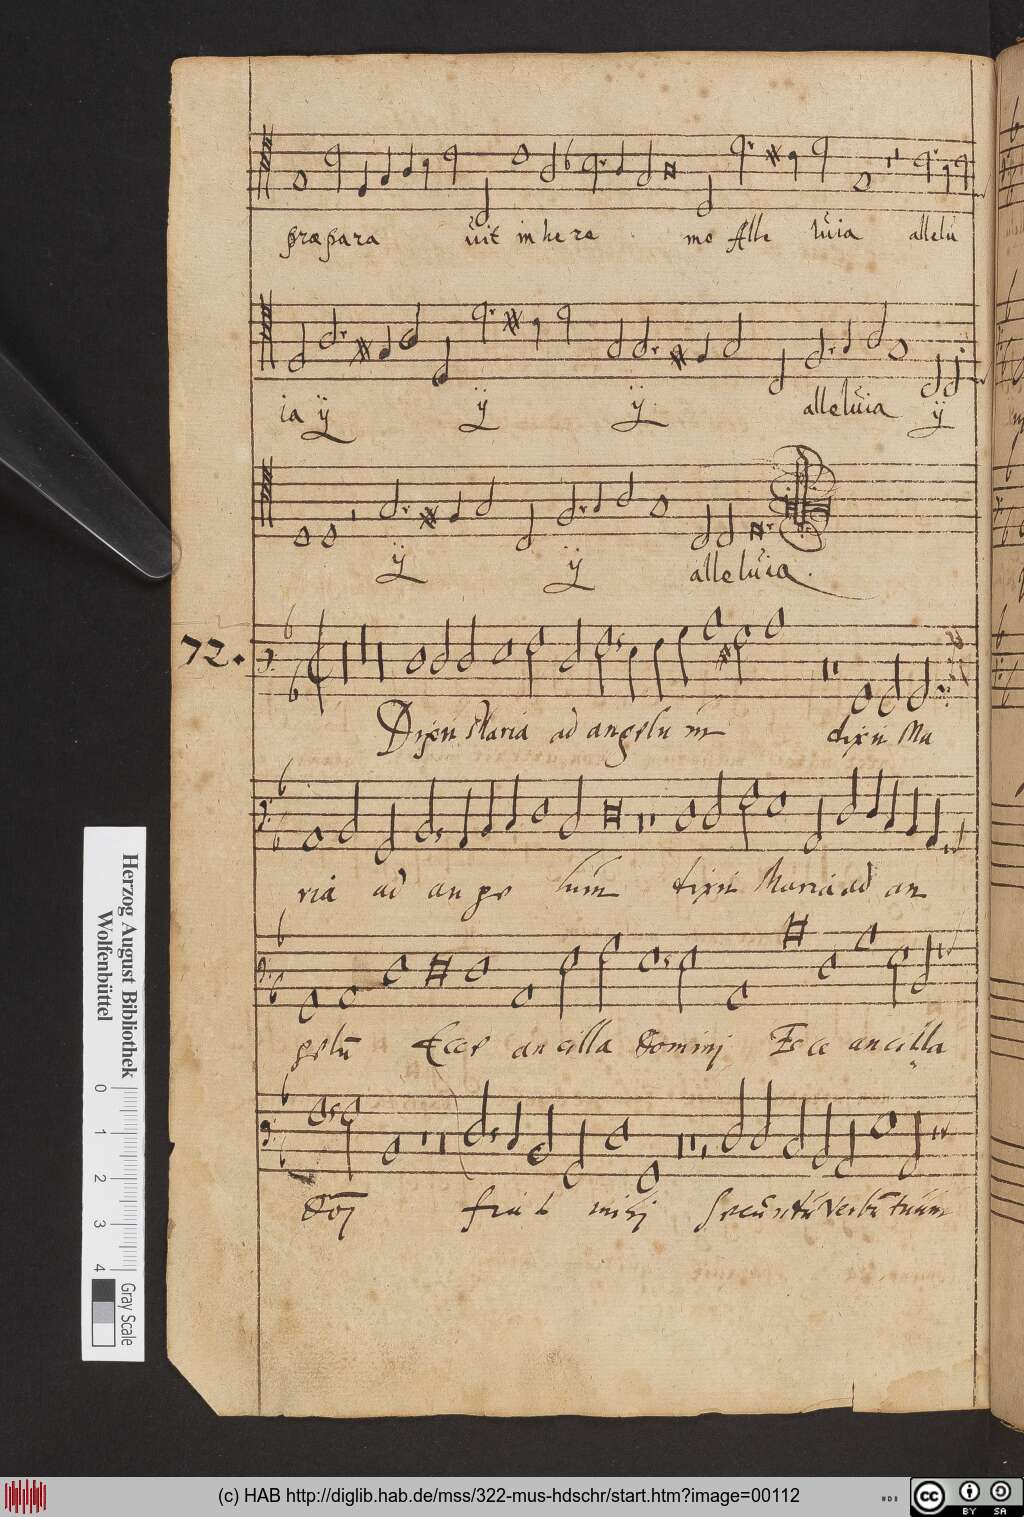 præpara uit in here mo Alle luia allelu
ia ÿ ÿ ÿ alleluia ÿ
ÿ ÿ alleluia.
72.
Dixit Maria ad angelu m dixit Ma
ria ad an ge lum dixit Maria ad an
gelū Ecce ancilla Dominj Ecce ancilla
Doj fiat mihj secundū verbū tuum
Herzog August Bibliothek
Wolfenbüttel
0 1 2 3 4
Gray Scale
(c) HAB http://diglib.hab.de/mss/322-mus-hdschr/start.htm?image=00112
cc BY SA